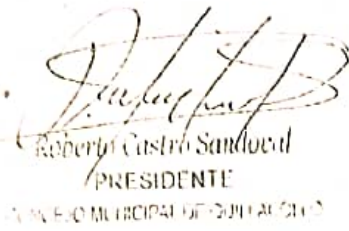 Roberto Castro Sandoval
PRESIDENTE
CONCEJO MUNICIPAL DE QUILLACOLLO